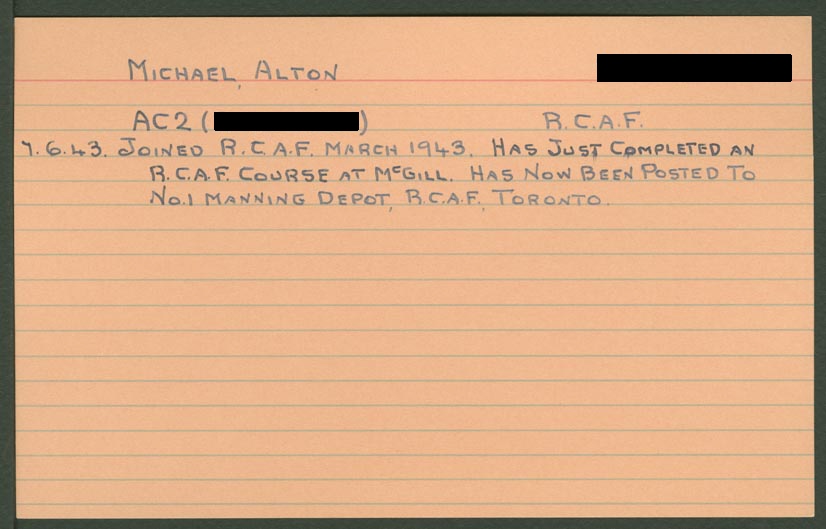 MICHAEL, ALTON
AC2 ( ) R.C.A.F.
7.6.43. JOINED R.C.A.F. MARCH 1943. HAS JUST COMPLETED AN
R.C.A.F. COURSE AT McGILL. HAS NOW BEEN POSTED TO
No.1 MANNING DEPOT, R.C.A.F., TORONTO.